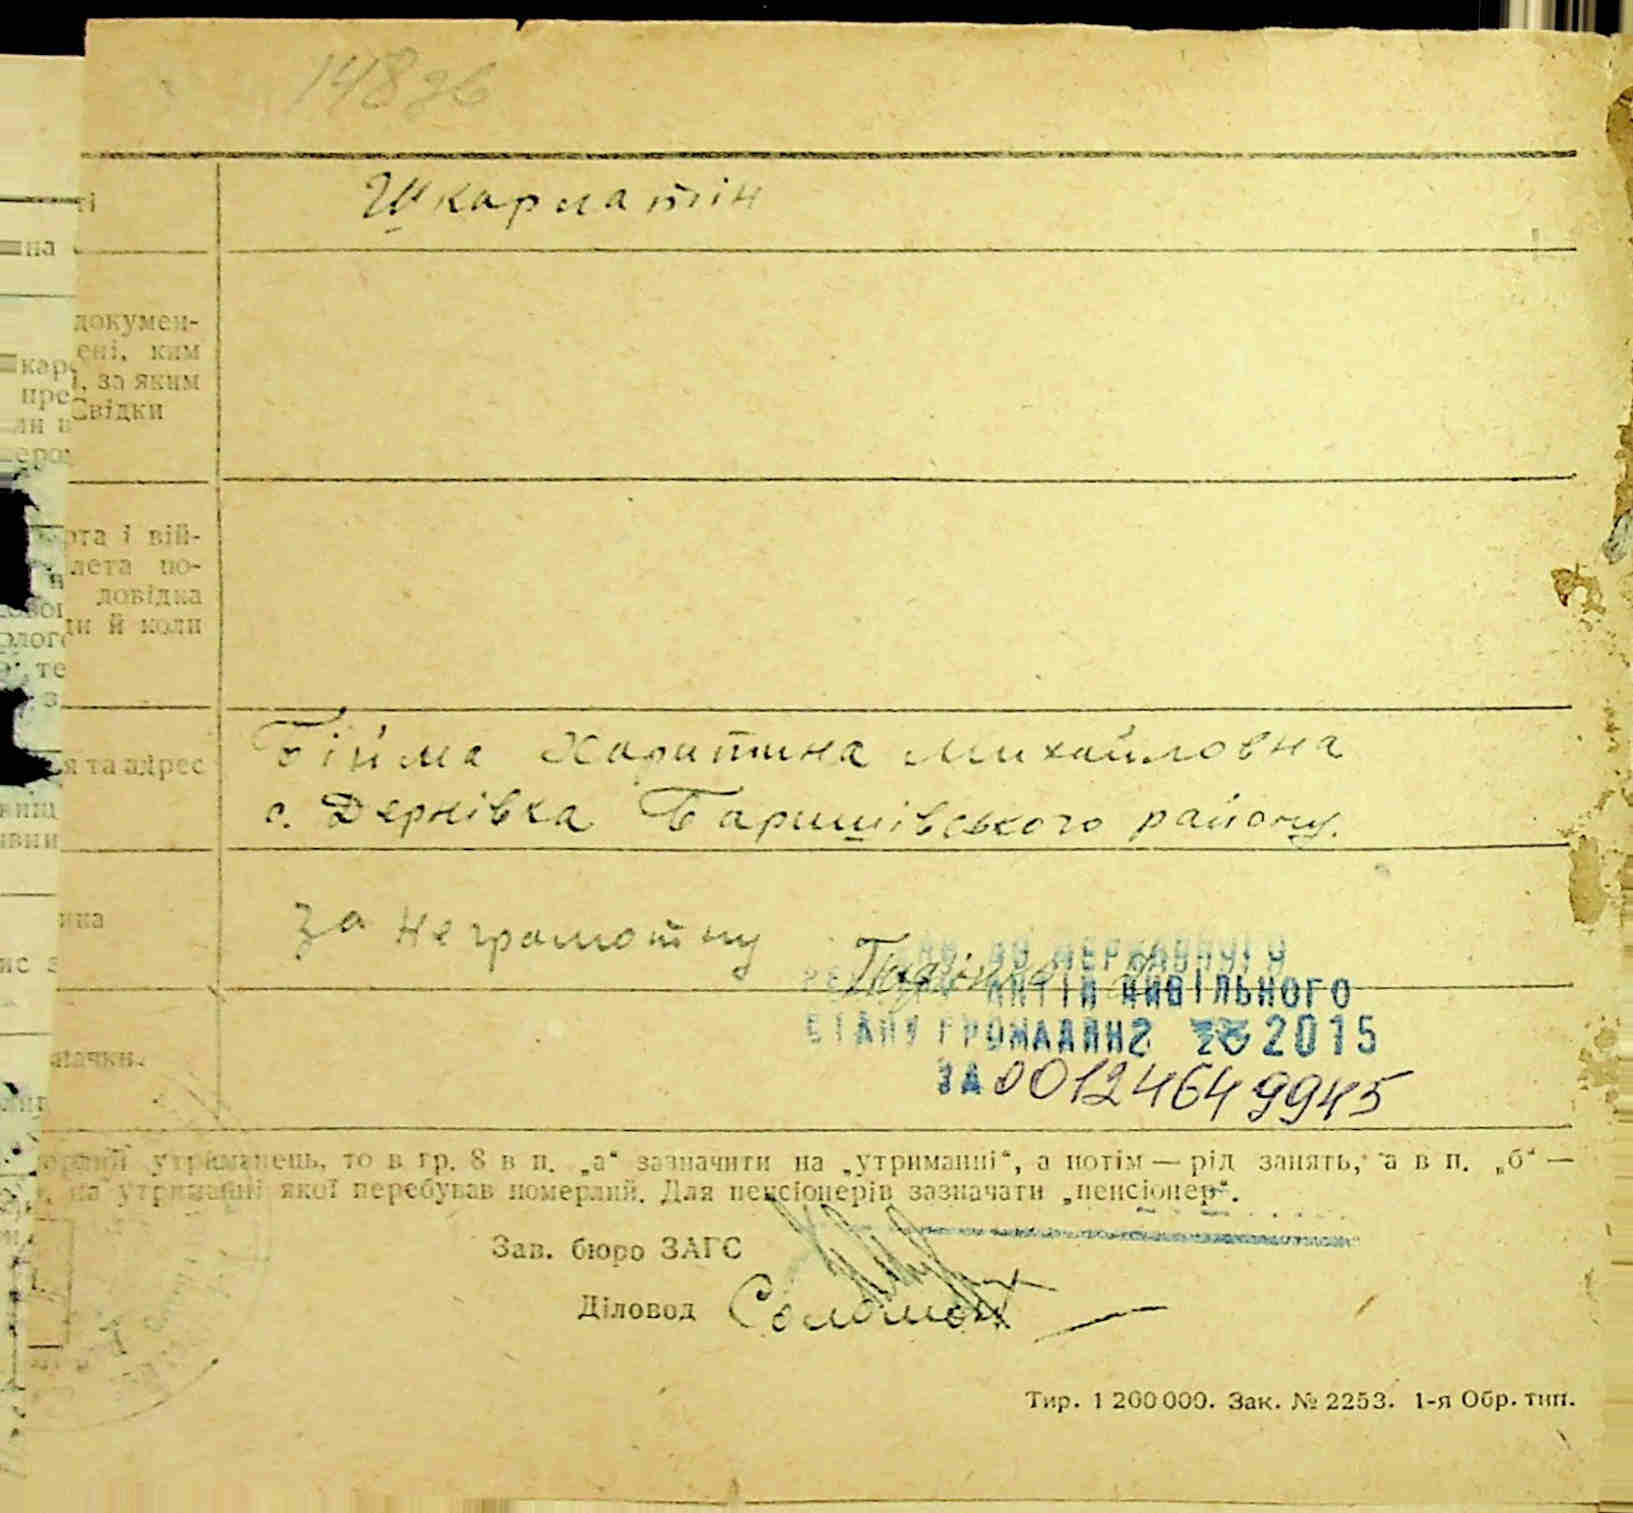 148 зв
Шкарлатін
на
докумен-
ені, ким
, за яким
Свідки
рта і вій-
лета по-
довідка
ди й коли
я та адрес
Бійма Харитина Михайловна
с. Дернівка Баришівського району.
ика
за неграмотну
ДЕРЖАВНОГО
АКТІВ ЦИВІЛЬНОГО
СТАНУ ГРОМАДЯН 2015
ЗА 00124649945
утриманець, то в гр. 8 в п. „а“ зазначити на „утриманні“, а потім — рід занять, а в п. „б“ —
на утриманні якої перебував померлий. Для пенсіонерів зазначати „пенсіонер“.
Зав. бюро ЗАГС
Діловод
Тир. 1 200 000. Зак. № 2253. 1-я Обр. тип.